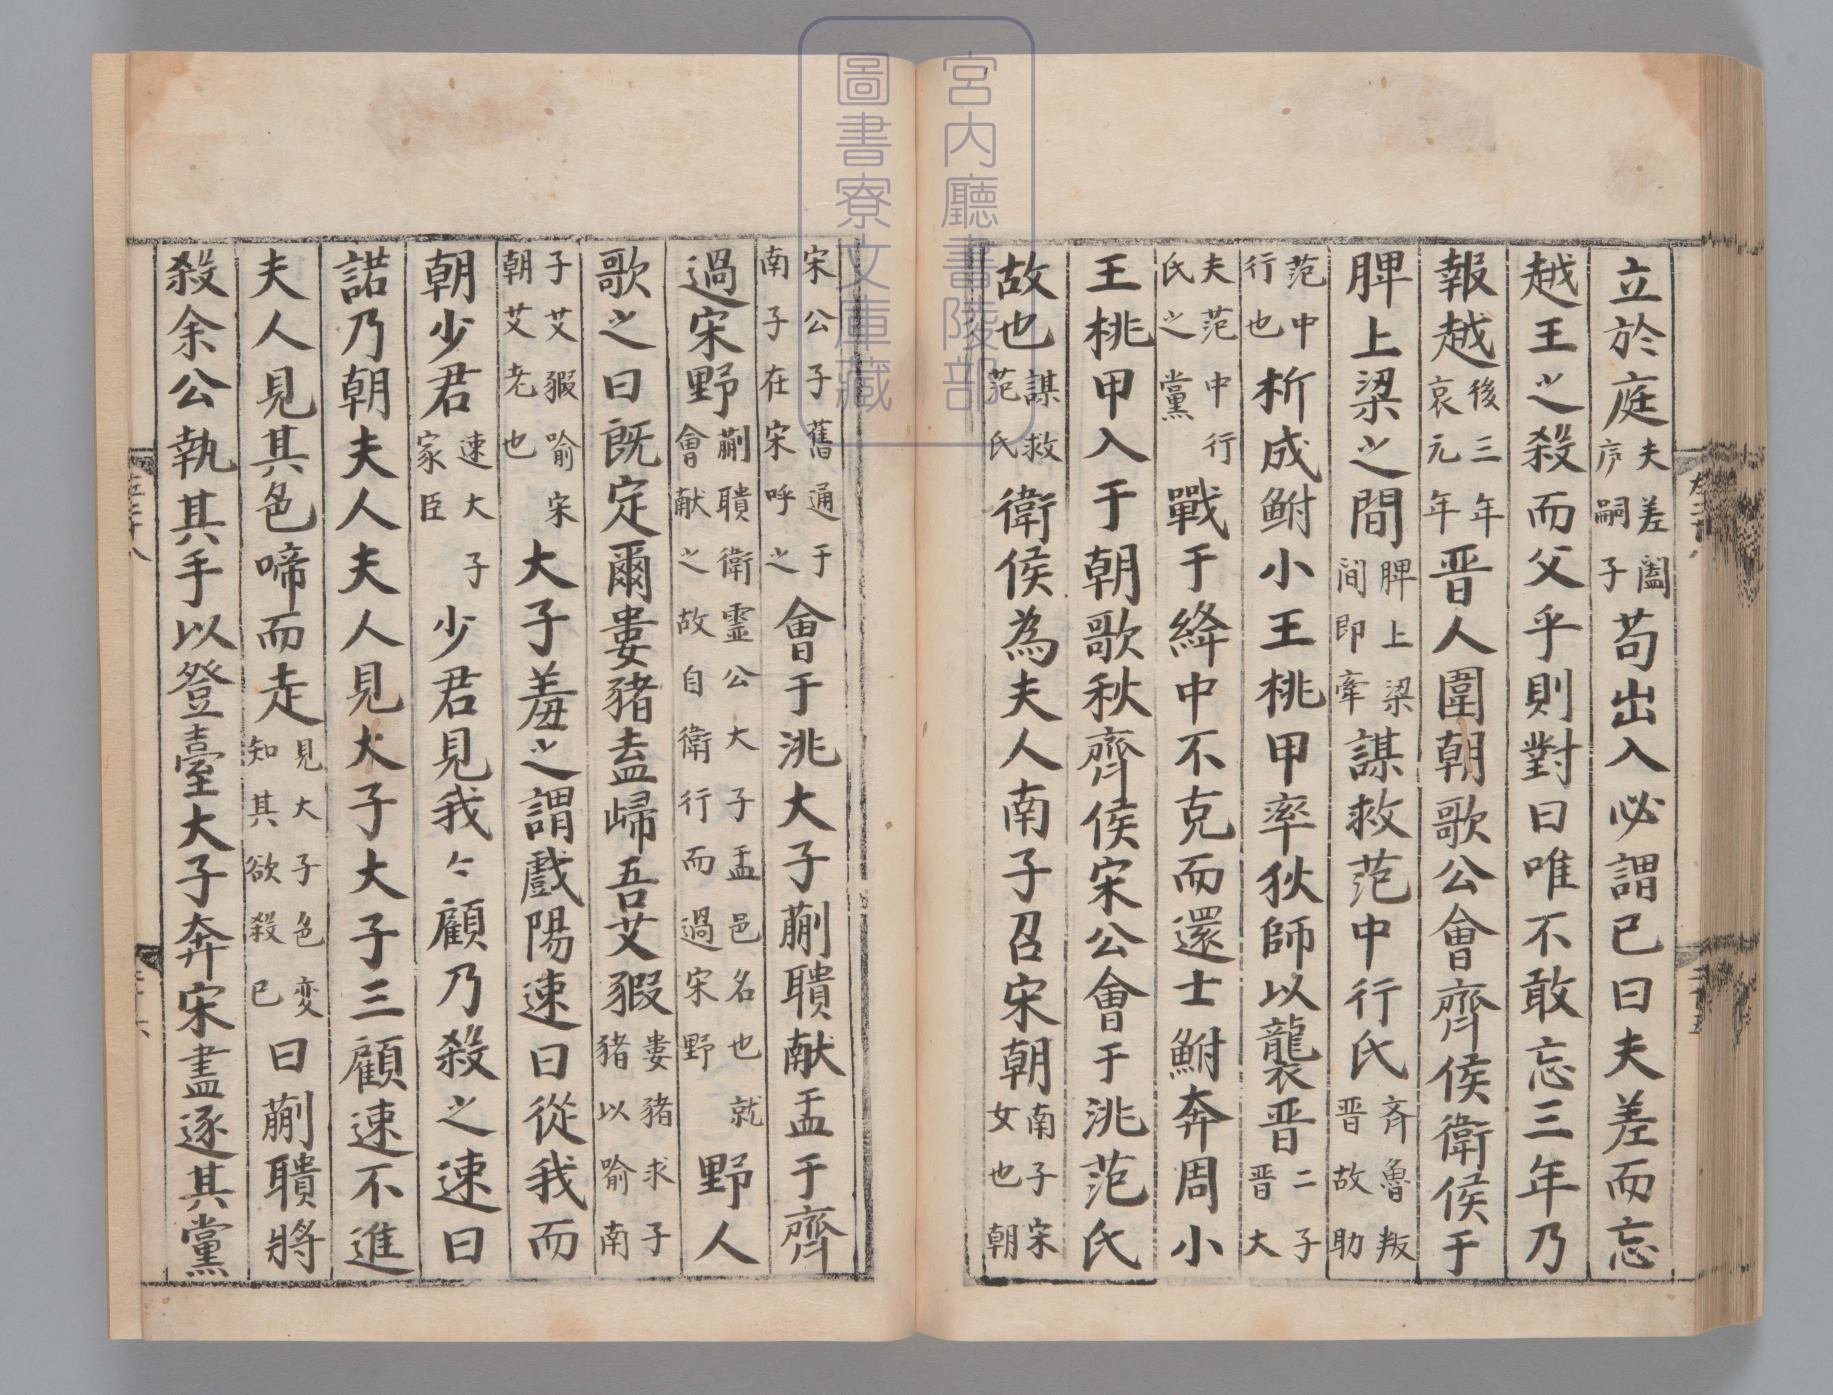 立於庭夫差闔庐嗣子苟出入必謂已曰夫差而忘
越王之殺而父乎則對曰唯不敢忘三年乃
報越後三年哀元年晋人圍朝歌公會齊侯衛侯于
脾上梁之間脾上梁間即牽謀救范中行氏斉魯叛晋故助
范中行也析成鮒小王桃甲率狄師以襲晋二子晋大
夫范中行氏之黨戰于絳中不克而還士鮒奔周小
王桃甲入于朝歌秋齊侯宋公會于洮范氏
故也謀救范氏衛侯為夫人南子召宋朝南子宋女也朝
宋公子舊通于南子在宋呼之會于洮大子蒯聵献盂于齊
過宋野蒯聵衛霊公大子盂邑名也就會献之故自衛行而過宋野野人
歌之曰既定爾婁豬盍歸吾艾豭婁豬求子豬以喻南
子艾豭喻宋朝艾老也大子羞之謂戲陽速曰從我而
朝少君速大子家臣少君見我々顧乃殺之速曰
諾乃朝夫人夫人見大子大子三顧速不進
夫人見其色啼而走見大子色変知其欲殺已曰蒯聵將
殺余公執其手以登臺大子奔宋盡逐其黨
宮内廳書陵部
圖書寮文庫藏